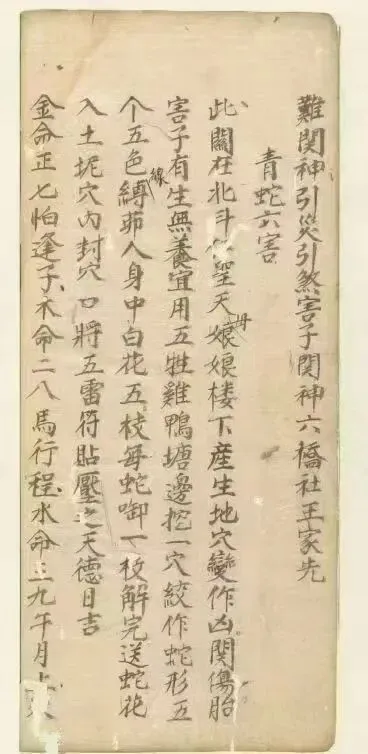 難関神引災引煞害子関神六橋社王家先
青蛇六害
此關在北斗聖天母娘娘楼下産生地穴變作凶関傷胎
害子有生無養宜用五牲雞鴨塘邊挖一穴絞作蛇形五
个五色線縛茆人身中白花五枝每蛇啣一枝解完送蛇花
入土坭穴内封穴口將五雷符貼壓之天德日吉
金命正七怕逢子木命二八馬行程水命三九午月